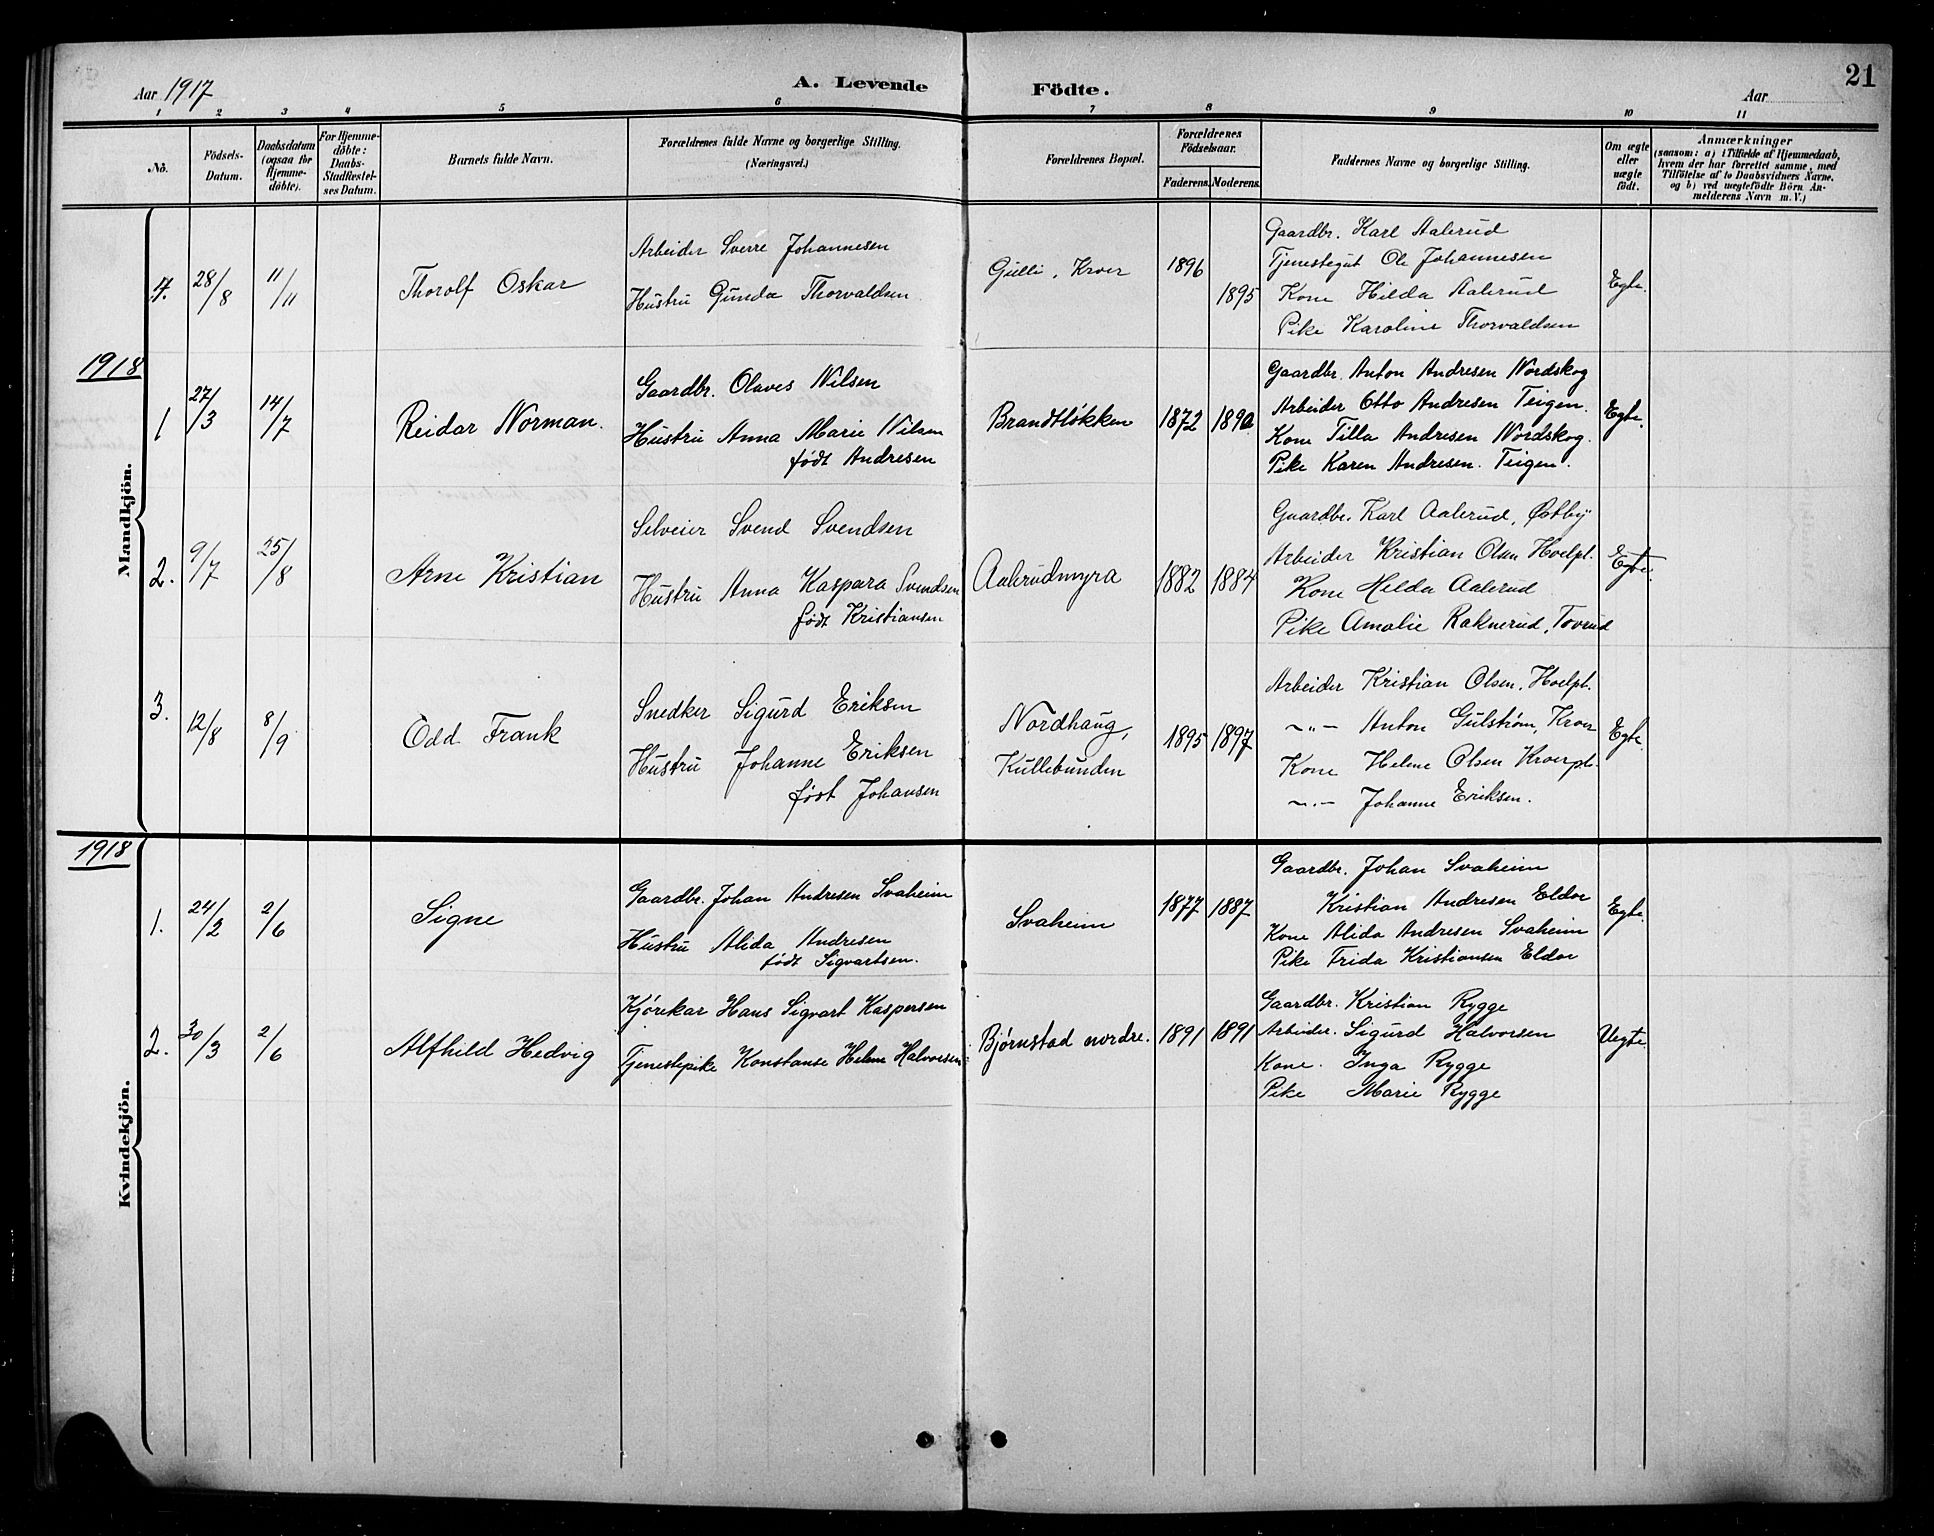 Aar 1917
A. Levende Födte.
Aar
21
1 2 3 4 5 6 7 8 9 10 11
No.
Födsels-
Datum.
Daabsdatum
(ogsaa for
Hjemme-
döbte).
For Hjemme-
döbte:
Daabs-
Stadfæstel-
ses Datum.
Barnets fulde Navn.
Forældrenes fulde Navne og borgerlige Stilling.
(Næringsvei.)
Forældrenes Bopæl.
Forældrenes
Födselsaar.
Faderens. Moderens.
Faddernes Navne og borgerlige Stilling.
Om ægte
eller
uægte
födt.
Anmærkninger
(saasom: a) i Tilfælde af Hjemmedaab,
hvem der har forrettet samme, med
Tilföielse af to Daabsvidners Navne,
og b) ved uægtefödte Börn An-
melderens Navn m. V.)
Mandkjön.
4.
28/8
11/11
Thorolf Oskar
Arbeider Sverre Johannesen
Hustru Gunda Thorvaldsen
Gulli, Kroer
1896
1895
Gaardbr. Karl Aalerud
Tjenestegut Ole Johannesen
Kone Hilda Aalerud
Pike Karoline Thorvaldsen
Egte.
1918
1
27/3
14/7
Reidar Norman.
Gaardbr. Olaves Nilsen
Hustru Anna Marie Nilsen
født Andresen
Brandtløkken
1872
1890
Gaardbr. Anton Andresen Nordskog
Arbeider Otto Andresen Teigen.
Kone Tilla Andresen Nordskog.
Pike Karen Andresen. Teigen.
Egte.
2.
9/7
25/8
Arne Kristian
Selveier Svend Svendsen
Hustru Anna Kaspara Svendsen
født Kristiansen
Aalerudmyra
1882
1884
Gaardbr. Karl Aalerud, Østby
Arbeider Kristian Olsen Hoelpl.
Kone Hilda Aalerud
Pike Amalie Raknerud, Toverud
Egte.
3.
12/8
8/9
Odd Frank
Snedker Sigurd Eriksen
Hustru Johanne Eriksen
født Johansen
Nordhaug,
Kullebunden
1895
1897
Arbeider Kristian Olsen, Hoelpl.
~„~ Anton Gulstrøm, Kroer
Kone Helene Olsen Kroerpl.
~„~ Johanne Eriksen.
Egte.
1918
Kvindekjön.
1.
24/2
2/6
Signe
Gaardbr. Johan Andresen Svaheim
Hustru Alida Andresen
født Sigvartsen.
Svaheim
1877
1887
Gaardbr. Johan Svaheim
Kristian Andresen Eldor
Kone Alida Andresen Svaheim
Pike Frida Kristiansen Eldor
Egte.
2.
30/3
2/6
Alfhild Hedvig
Kjørekar Hans Sigvart Kaspersen
Tjenestepike Konstanse Helene Halvorsen
Bjørnstad nordre.
1891
1891
Gaardbr. Kristian Rygge
Arbeider. Sigurd Halvorsen
Kone. Inga Rygge
Pike Marie Rygge
Uegte.